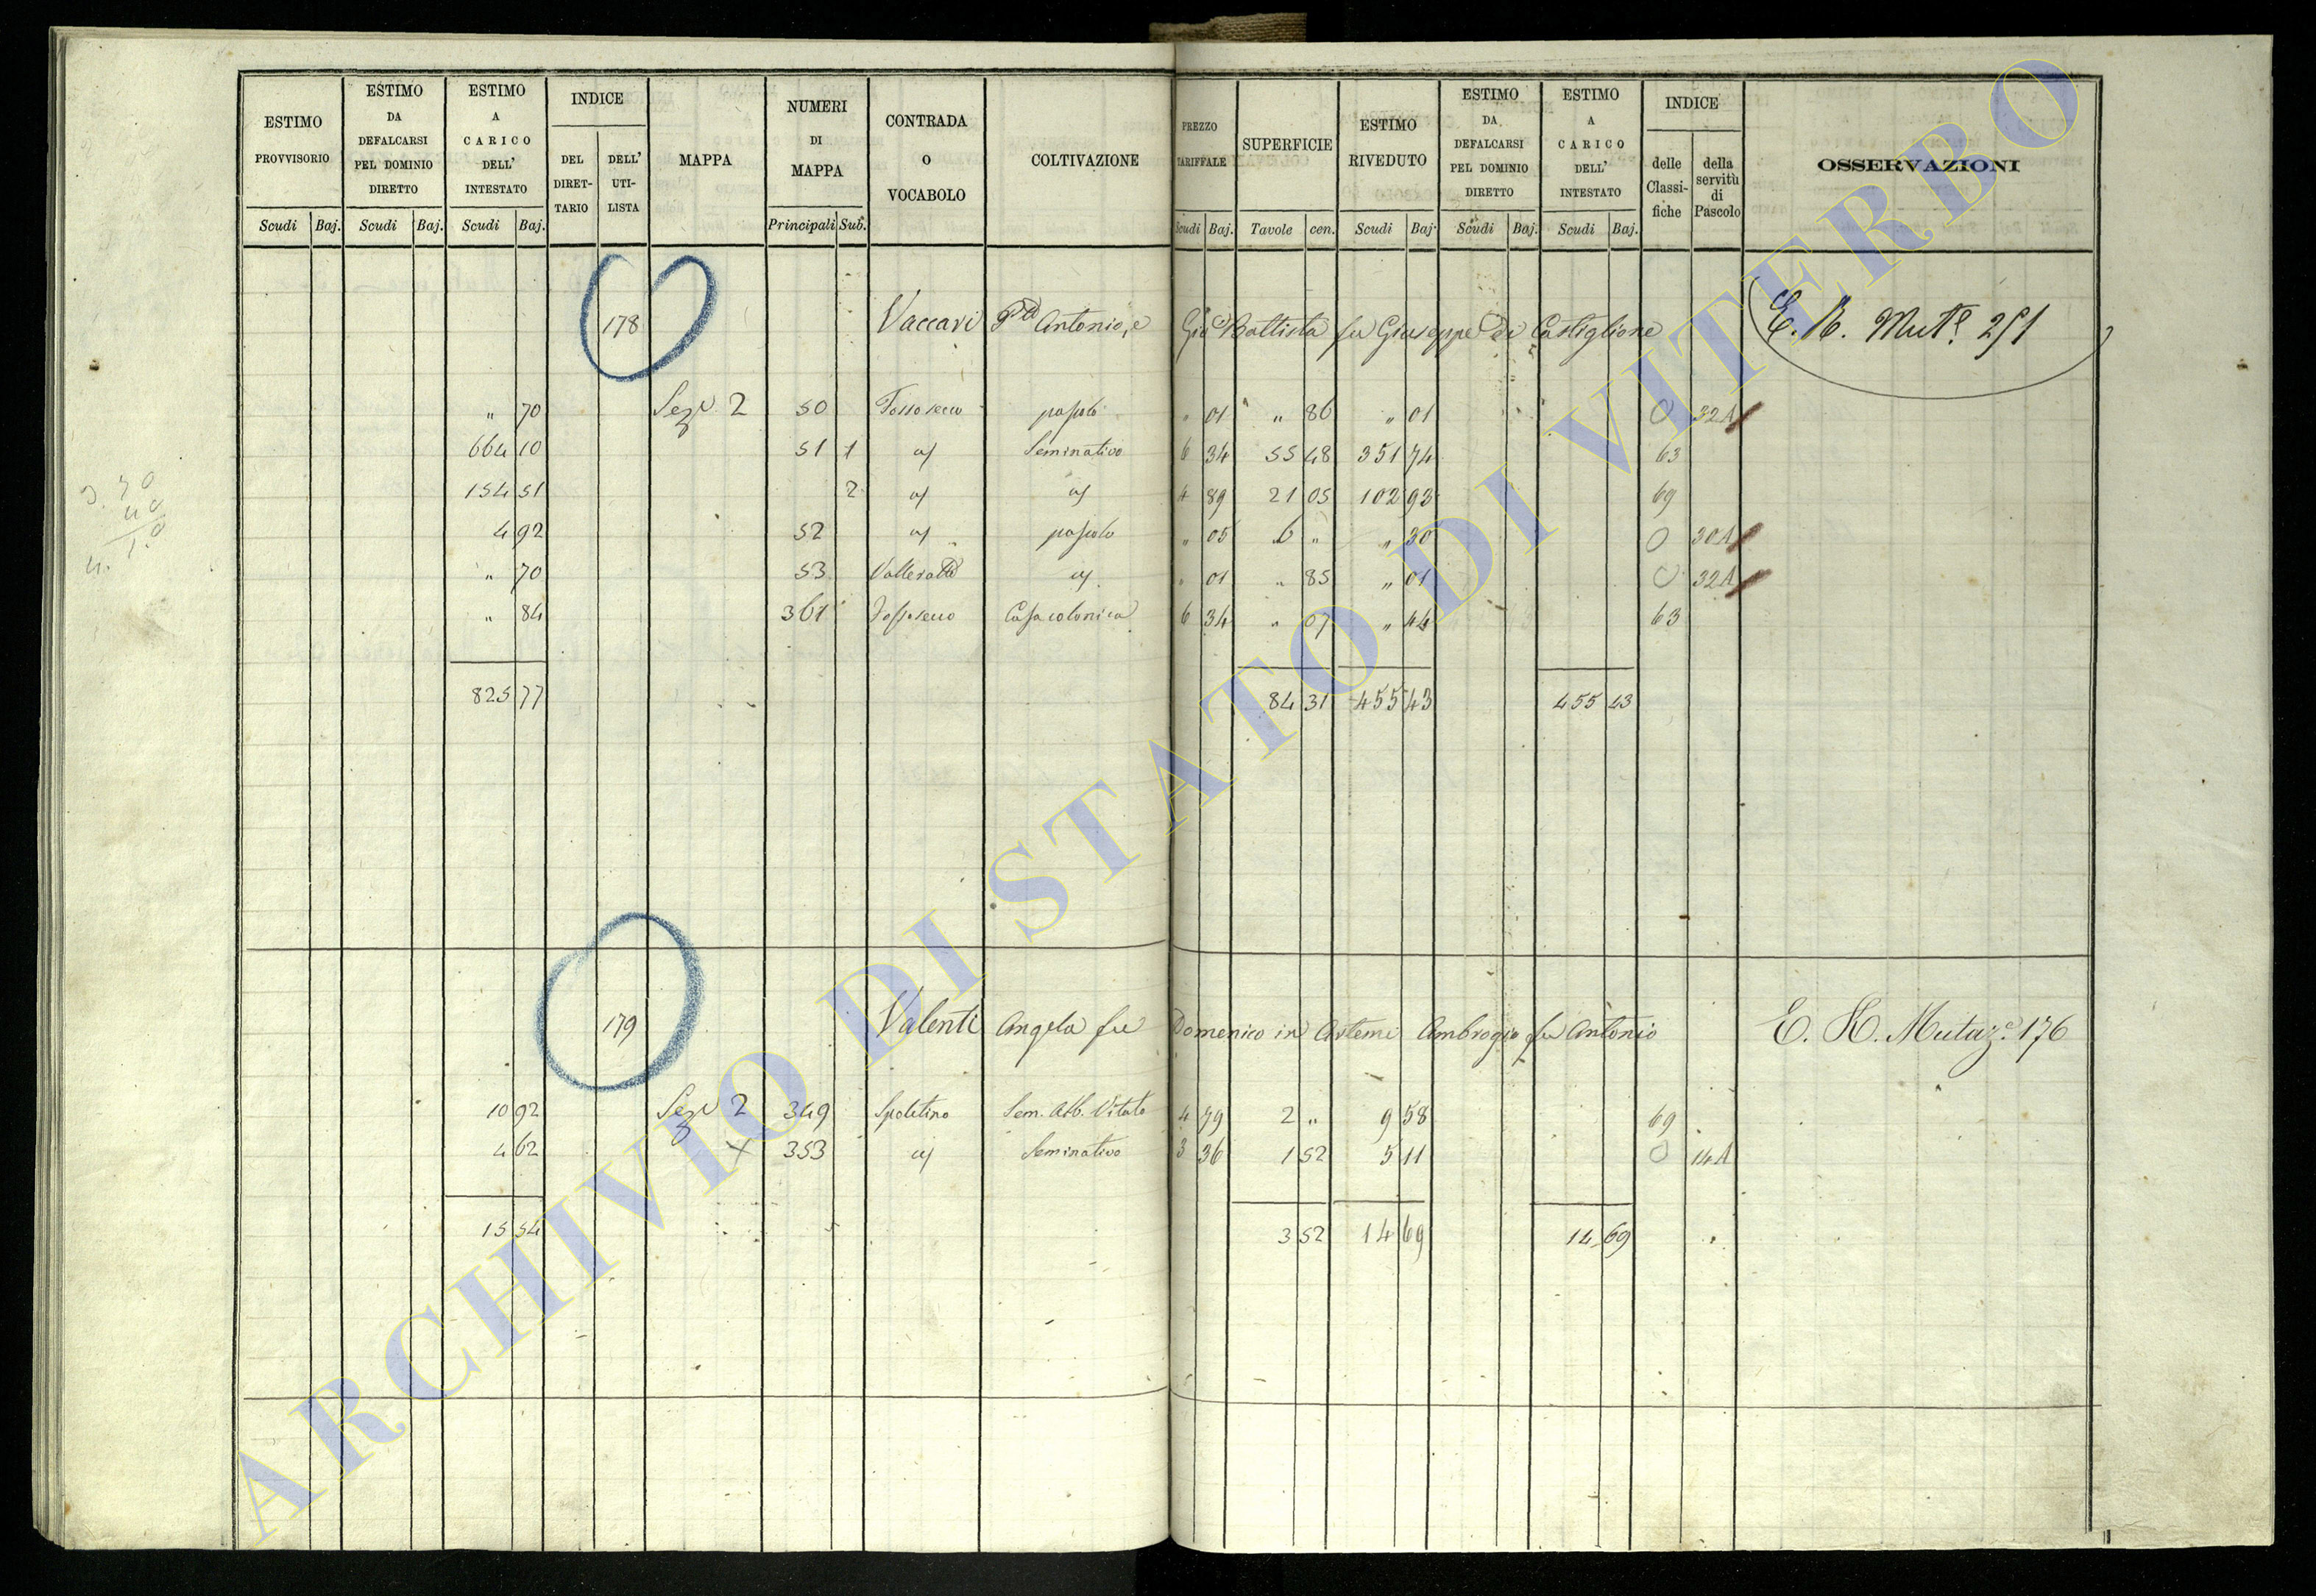 ESTIMO PROVVISORIO | ESTIMO DA DEFALCARSI PEL DOMINIO DIRETTO | ESTIMO A CARICO DELL' INTESTATO | INDICE | MAPPA | NUMERI DI MAPPA | CONTRADA O VOCABOLO | COLTIVAZIONE | PREZZO TARIFFALE | SUPERFICIE | ESTIMO RIVEDUTO | ESTIMO DA DEFALCARSI PEL DOMINIO DIRETTO | ESTIMO A CARICO DELL' INTESTATO | INDICE | OSSERVAZIONI
DEL DIRET-TARIO | DELL' UTI-LISTA | delle Classi-fiche | della servitù di Pascolo
Scudi | Baj. | Scudi | Baj. | Scudi | Baj. | Principali | Sub. | Scudi | Baj. | Tavole | cen. | Scudi | Baj. | Scudi | Baj. | Scudi | Baj.
178 Vaccari Antonio, e Gio Battista fu Giuseppe di Castiglione E. R. Mut.e 251
" 70 Seze 2 50 Fossosecco pascolo " 01 " 86 " 01 0 32A
664 10 51 1 a/ Seminativo 6 34 55 48 351 74 63
154 51 2 a/ a/ 4 89 21 05 102 93 69
4 92 52 a/ pascolo " 05 6 " " 30 0 30A
" 70 53 a/ " 01 " 85 " 01 0 32A
" 84 361 Fossosecco Casa colonica 6 34 " 07 " 44 63
825 77 84 31 455 43 455 43
179 Valenti Angela fu Domenico in Artemi Ambrogio fu Antonio E. R. Mutaz.e 176
10 92 Seze 2 349 Spoletino Sem. Alb. Vitato 4 79 2 " 9 58 69
4 62 x 353 a/ Seminativo 3 36 1 52 5 11 0 14A
15 54 3 52 14 69 14 69
ARCHIVIO DI STATO DI VITERBO